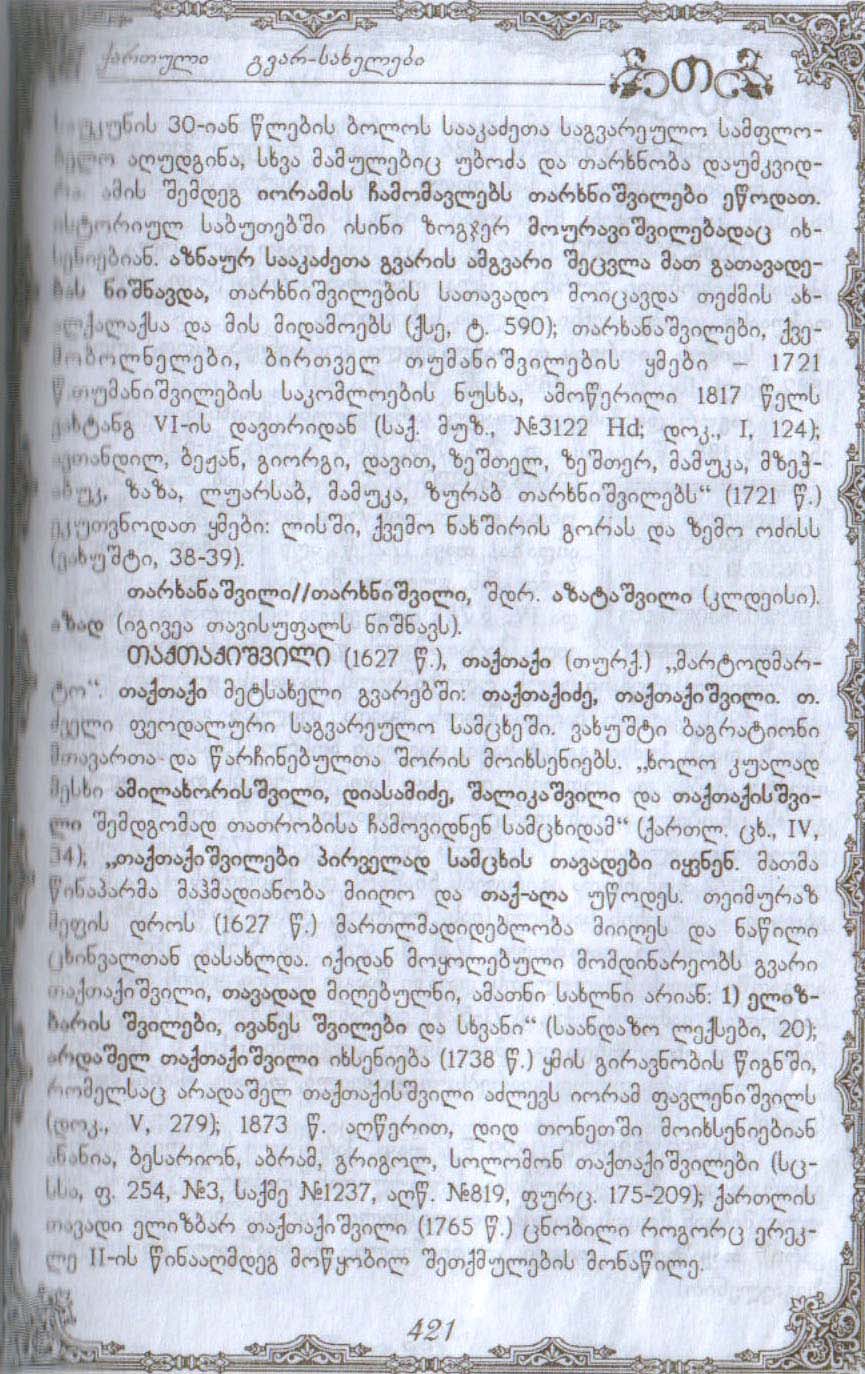 ქართული გვარ-სახელები
თ
საუკუნის 30-იან წლების ბოლოს სააკაძეთა საგვარეულო სამფლო-
ბელო აღუდგინა, სხვა მამულებიც უბოძა და თარხნობა დაუმკვიდ-
რა. ამის შემდეგ იორამის ჩამომავლებს თარხნიშვილები ეწოდათ.
ისტორიულ საბუთებში ისინი ზოგჯერ მოურავიშვილებადაც იხ-
სენიებიან. აზნაურ სააკაძეთა გვარის ამგვარი შეცვლა მათ გათავადე-
ბას ნიშნავდა, თარხნიშვილების სათავადო მოიცავდა თეძმის ახ-
ალქალაქსა და მის მიდამოებს (ქსე, ტ. 590); თარხანაშვილები, ქვე-
მობოლნელები, ბირთველ თუმანიშვილების ყმები – 1721
წ.თუმანიშვილების საკომლოების ნუსხა, ამოწერილი 1817 წელს
ვახტანგ VI-ის დავთრიდან (საქ. მუზ., №3122 Hd; დოკ., I, 124);
ავთანდილ, ბეჟან, გიორგი, დავით, ზეშთელ, ზეშთერ, მამუკა, მზეჭ-
აბუკ, ზაზა, ლუარსაბ, მამუკა, ზურაბ თარხნიშვილებს“ (1721 წ.)
ეკუთვნოდათ ყმები: ლისში, ქვემო ნახშირის გორას და ზემო ოძისს
(ვახუშტი, 38-39).
თარხანაშვილი//თარხნიშვილი, შდრ. აზატაშვილი (კლდეისი).
აზად (იგივეა თავისუფალს ნიშნავს).
თაქთაქიშვილი (1627 წ.), თაქთაქი (თურქ.) „მარტოდმარ-
ტო“. თაქთაქი მეტსახელი გვარებში: თაქთაქიძე, თაქთაქიშვილი. თ.
ძველი ფეოდალური საგვარეულო სამცხეში. ვახუშტი ბაგრატიონი
მთავართა და წარჩინებულთა შორის მოიხსენიებს. „ხოლო კუალად
მესხი ამილახორისშვილი, დიასამიძე, შალიკაშვილი და თაქთაქისშვი-
ლი შემდგომად თათრობისა ჩამოვიდნენ სამცხიდამ“ (ქართლ. ცხ., IV,
34); „თაქთაქიშვილები პირველად სამცხის თავადები იყვნენ. მათმა
წინაპარმა მაჰმადიანობა მიიღო და თაქ-აღა უწოდეს. თეიმურაზ
მეფის დროს (1627 წ.) მართლმადიდებლობა მიიღეს და ნაწილი
ცხინვალთან დასახლდა. იქიდან მოყოლებული მომდინარეობს გვარი
თაქთაქიშვილი, თავადად მიღებულნი, ამათნი სახლნი არიან: 1) ელიზ-
ბარის შვილები, ივანეს შვილები და სხვანი“ (საანდაზო ლექსები, 20);
არდაშელ თაქთაქიშვილი იხსენიება (1738 წ.) ყმის გირავნობის წიგნში,
რომელსაც არადაშელ თაქთაქისშვილი აძლევს იორამ ფავლენიშვილს
(დოკ., V, 279); 1873 წ. აღწერით, დიდ თონეთში მოიხსენიებიან
ანანია, ბესარიონ, აბრამ, გრიგოლ, სოლომონ თაქთაქიშვილები (სც-
სსა, ფ. 254, №3, საქმე №1237, აღწ. №819, ფურც. 175-209); ქართლის
თავადი ელიზბარ თაქთაქიშვილი (1765 წ.) ცნობილი როგორც ერეკ-
ლე II-ის წინააღმდეგ მოწყობილ შეთქმულების მონაწილე.
421